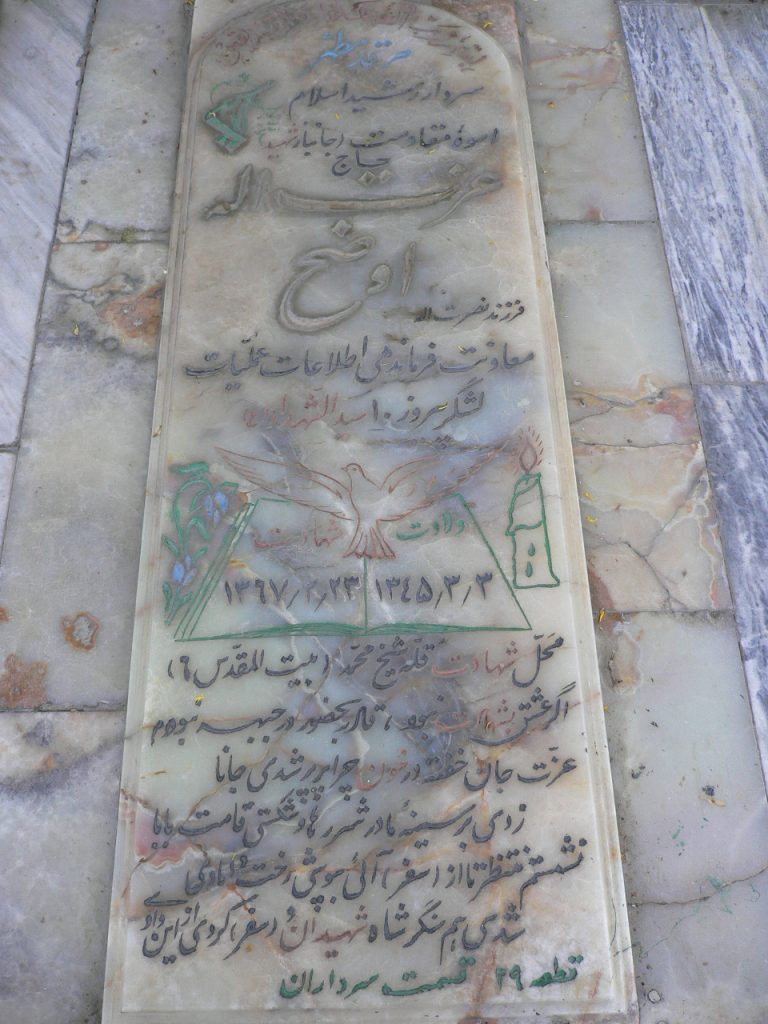 مرقد مطهر
سردار رشید اسلام
اسوهٔ مقاومت (جانباز شهید)
حاج
عزت اله
اوضح
فرزند نصرت اله
معاونت فرماندهی اطلاعات عملیات
لشگر پیروز ۱۰ سید الشهداء
ولادت شهادت
۱۳۴۵/۳/۳ ۱۳۶۷/۲/۲۳
محلّ شهادت قلّه شیخ محمّد (بیت المقدّس ۶)
اگر عشق شهادت نبود، قادر بحضور در جبهه نبودم
عزّت جان خفته در خون چرا پرپر شدی جانا
زدی بر سینهٔ مادر شرر ها و شکستی قامت بابا
نشستم منتظر تا از (سفر) آئی بپوشی رخت دامادی
شدی هم سنگر شاه شهیدان و (سفر) کردی از این وادی
قطعه ۲۹ قسمت سرداران